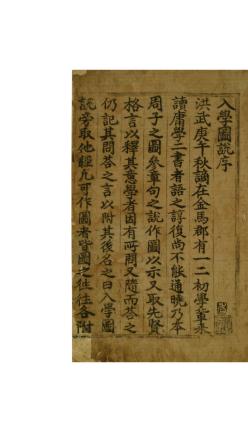 入學圖說序
洪武庚午秋謫在金馬郡有一二初學輩來
讀庸學二書者語之諄復尚不能通曉乃本
周子之圖參章句之說作圖以示又取先賢
格言以釋其意學者因有所問又隨而答之
仍記其問答之言以附其後名之曰入學圖
說旁取他經凡可作圖者皆圖之往往各附